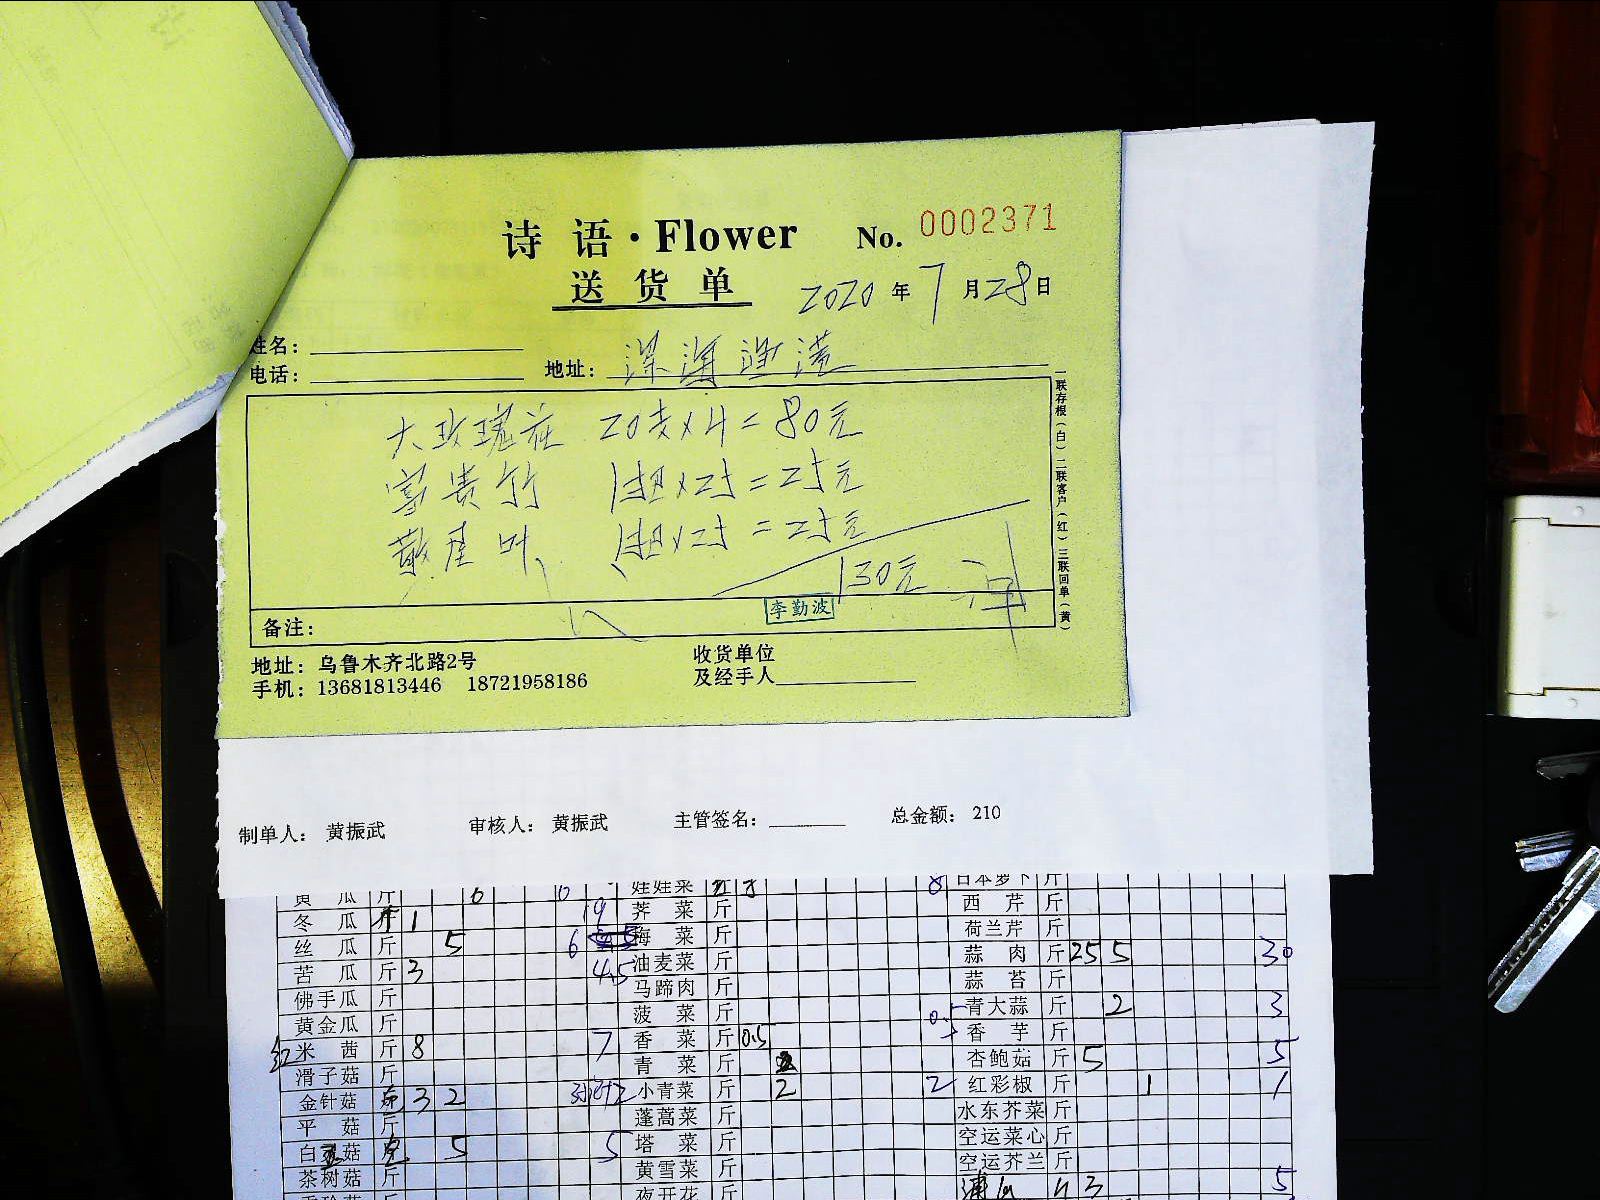 诗语·Flower No. 0002371
送货单 2020年7月28日
姓名：
电话： 地址：深海渔港
大玫瑰花 20支×4=80元
富贵竹 1把×25=25元
散尾叶 1把×25=25元
130元
李勤波
备注：
一联存根（白）二联客户（红）三联回单（黄）
地址：乌鲁木齐北路2号 收货单位
手机：13681813446 18721958186 及经手人
制单人： 黄振武 审核人： 黄振武 主管签名： 总金额： 210
黄瓜 斤 6 娃娃菜 8 日本萝卜 斤
冬瓜 斤 1 19 荠菜 斤 西芹 斤
丝瓜 斤 5 6 梅菜 斤 荷兰芹 斤
苦瓜 斤 3 4.5 油麦菜 斤 蒜肉 斤 25 5 30
佛手瓜 斤 马蹄肉 斤 蒜苔 斤
黄金瓜 斤 菠菜 斤 0.5 青大蒜 斤 2 3
红米茜 斤 8 7 香菜 斤 0.5 香芋 斤
滑子菇 斤 青菜 斤 杏鲍菇 斤 5 5
金针菇 3 2 小青菜 斤 2 2 红彩椒 斤 1 1
平菇 斤 蓬蒿菜 斤 水东芥菜 斤
白玉菇 5 5 塔菜 斤 空运菜心 斤
茶树菇 斤 黄雪菜 斤 空运芥兰 斤
夜开花 斤 3 5